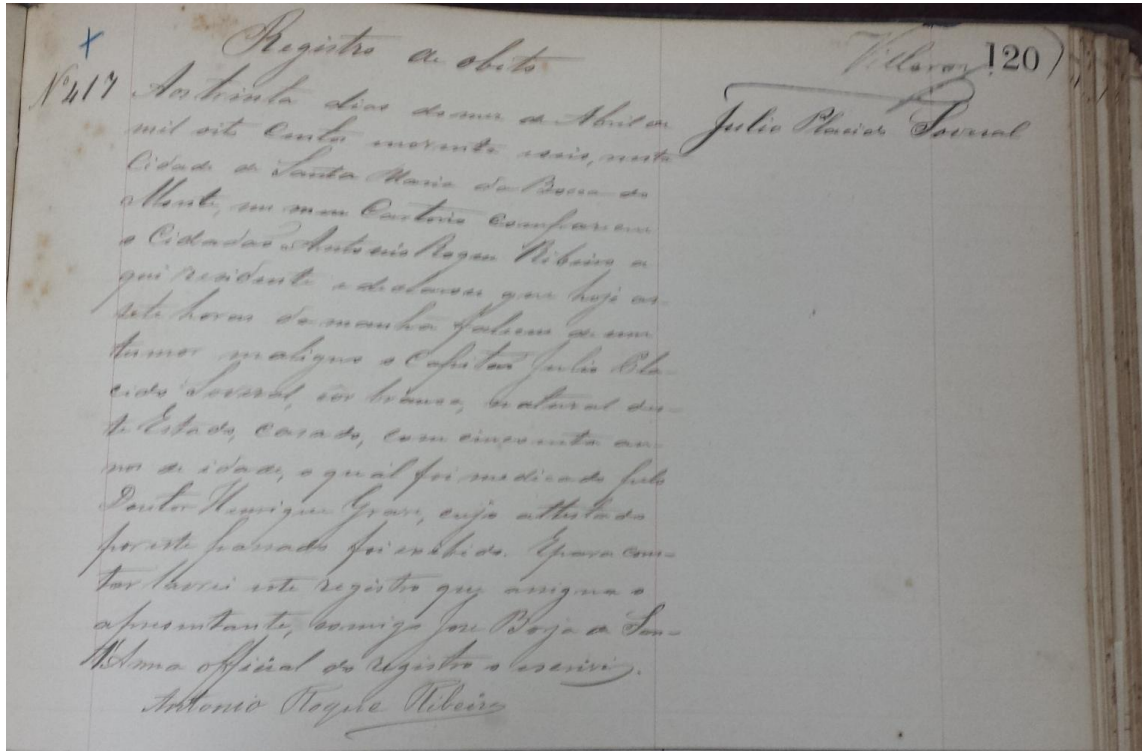 Registro de obito
Villaron 120
Nº 417
Julio Placido Soveral
Aos trinta dias do mez de Abril de
mil oito centos noventa e seis, nesta
Cidade de Santa Maria da Bocca do
Monte, em meu Cartorio compareceu
o Cidadão Antonio Roque Ribeiro a-
qui residente e declarou que hoje as
sete horas da manhã faleceu de um
tumor maligno o Capitão Julio Pla-
cido Soveral, côr branca, natural des-
te Estado, casado, com cincoenta an-
nos de idade, o qual foi medicado pelo
Doutor Henrique, cujo attestado
por este passado foi exibido. E para cons-
tar lavrei este registro que assigna o
apresentante, comigo José Borja de San-
t'Anna official do registro o escrevi.
Antonio Roque Ribeiro